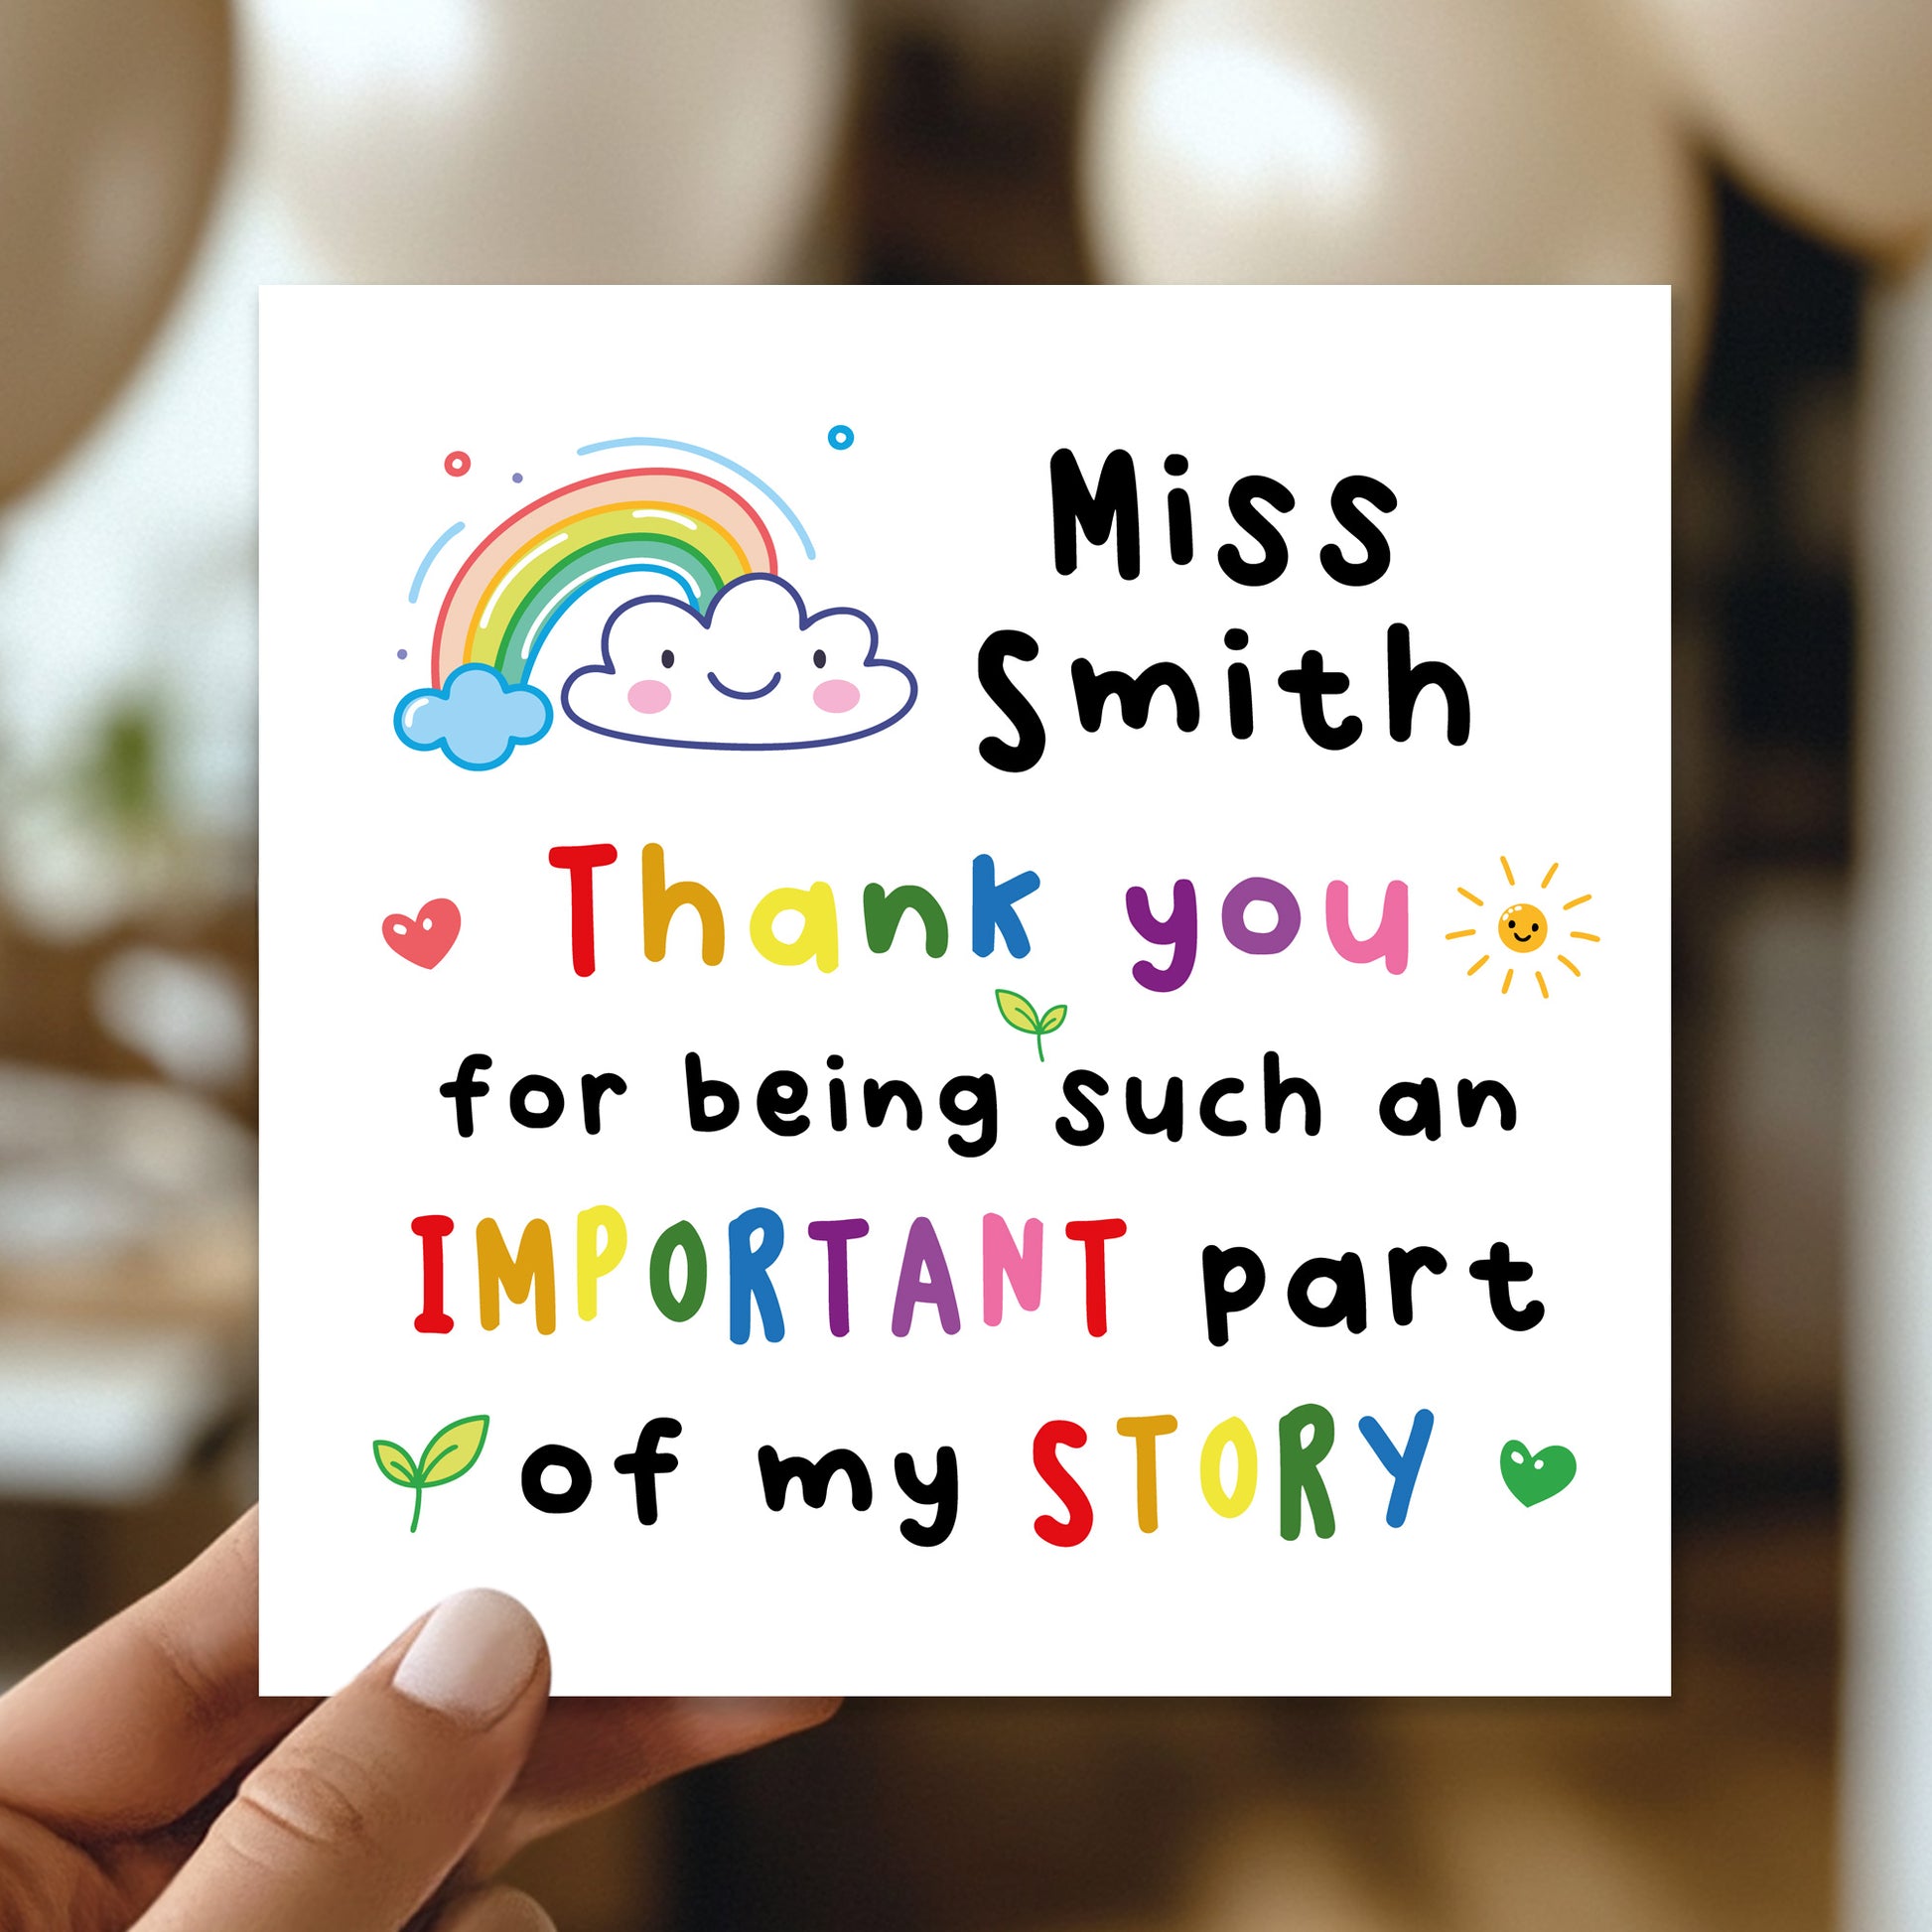 Miss
Smith
Thank you
for being such an
IMPORTANT part
of my STORY